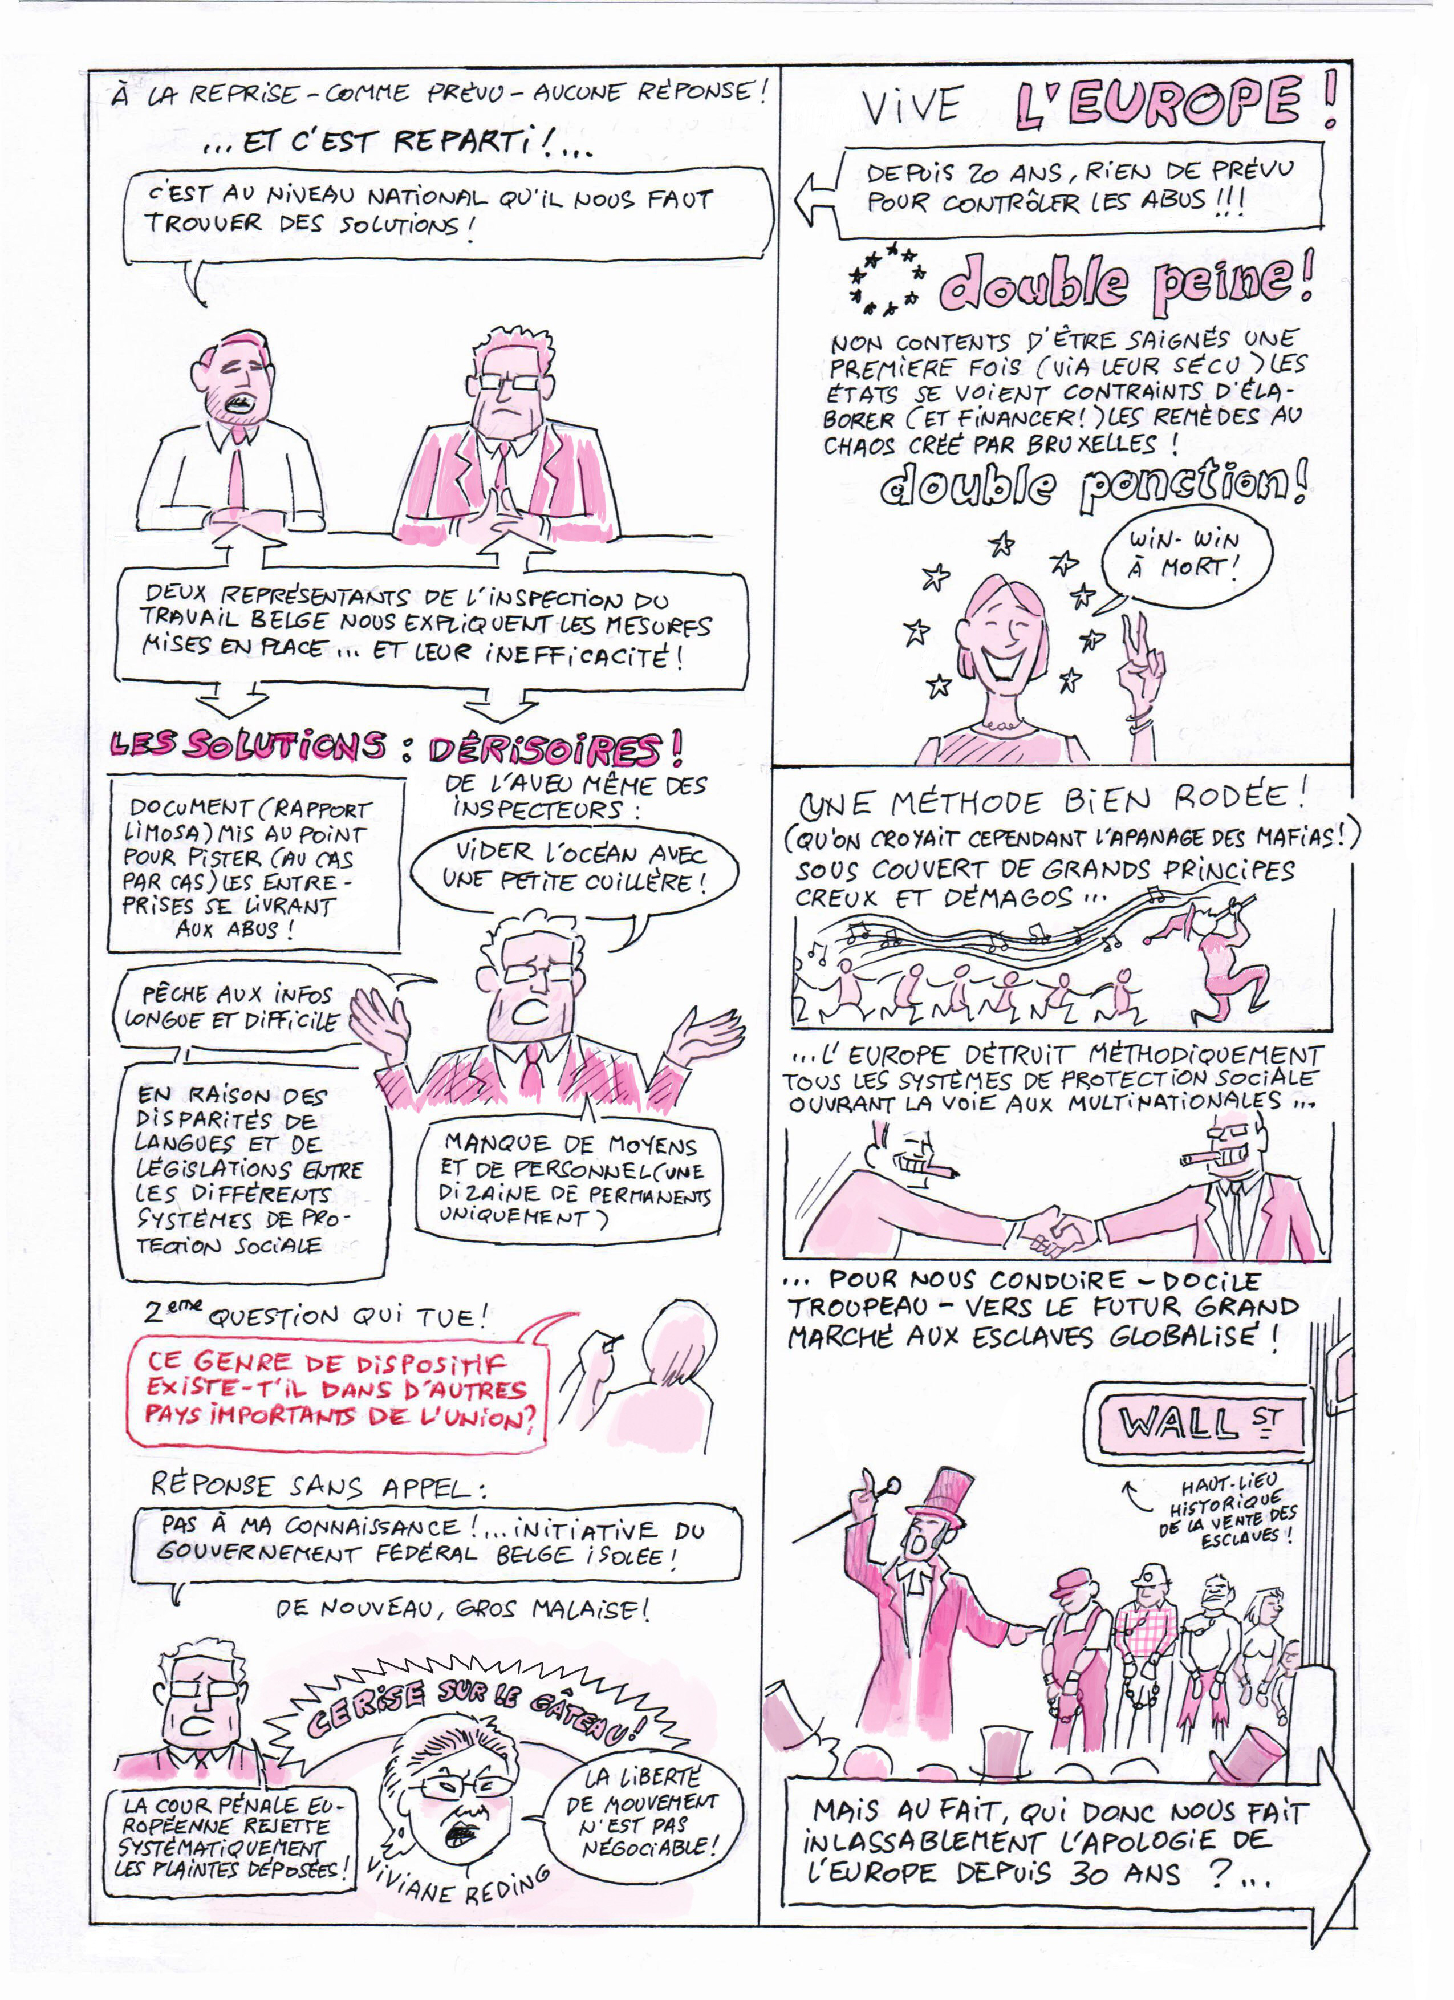 À LA REPRISE - COMME PRÉVU - AUCUNE RÉPONSE !
... ET C'EST REPARTI !...
C'EST AU NIVEAU NATIONAL QU'IL NOUS FAUT
TROUVER DES SOLUTIONS !
DEUX REPRÉSENTANTS DE L'INSPECTION DU
TRAVAIL BELGE NOUS EXPLIQUENT LES MESURES
MISES EN PLACE ... ET LEUR INEFFICACITÉ !
LES SOLUTIONS : DÉRISOIRES !
DOCUMENT (RAPPORT
LIMOSA) MIS AU POINT
POUR PISTER (AU CAS
PAR CAS) LES ENTRE-
PRISES SE LIVRANT
AUX ABUS !
DE L'AVEU MÊME DES
INSPECTEURS :
VIDER L'OCÉAN AVEC
UNE PETITE CUILLÈRE !
PÊCHE AUX INFOS
LONGUE ET DIFFICILE
EN RAISON DES
DISPARITÉS DE
LANGUES ET DE
LÉGISLATIONS ENTRE
LES DIFFÉRENTS
SYSTÈMES DE PRO-
TECTION SOCIALE
MANQUE DE MOYENS
ET DE PERSONNEL (UNE
DIZAINE DE PERMANENTS
UNIQUEMENT)
2eme QUESTION QUI TUE !
CE GENRE DE DISPOSITIF
EXISTE-T'IL DANS D'AUTRES
PAYS IMPORTANTS DE L'UNION ?
RÉPONSE SANS APPEL :
PAS À MA CONNAISSANCE !... INITIATIVE DU
GOUVERNEMENT FÉDÉRAL BELGE ISOLÉE !
DE NOUVEAU, GROS MALAISE !
CERISE SUR LE GÂTEAU !
LA COUR PÉNALE EU-
ROPÉENNE REJETTE
SYSTÉMATIQUEMENT
LES PLAINTES DÉPOSÉES !
VIVIANE REDING
LA LIBERTÉ
DE MOUVEMENT
N'EST PAS
NÉGOCIABLE !
VIVE L'EUROPE !
DEPUIS 20 ANS, RIEN DE PRÉVU
POUR CONTRÔLER LES ABUS !!!
double peine !
NON CONTENTS D'ÊTRE SAIGNÉS UNE
PREMIERE FOIS (VIA LEUR SÉCU) LES
ÉTATS SE VOIENT CONTRAINTS D'ÉLA-
BORER (ET FINANCER !) LES REMÈDES AU
CHAOS CRÉÉ PAR BRUXELLES !
double ponction !
WIN-WIN
À MORT !
UNE MÉTHODE BIEN RODÉE !
(QU'ON CROYAIT CEPENDANT L'APANAGE DES MAFIAS !)
SOUS COUVERT DE GRANDS PRINCIPES
CREUX ET DÉMAGOS ...
... L'EUROPE DÉTRUIT MÉTHODIQUEMENT
TOUS LES SYSTÈMES DE PROTECTION SOCIALE
OUVRANT LA VOIE AUX MULTINATIONALES ...
... POUR NOUS CONDUIRE - DOCILE
TROUPEAU - VERS LE FUTUR GRAND
MARCHÉ AUX ESCLAVES GLOBALISÉ !
WALL ST
HAUT-LIEU
HISTORIQUE
DE LA VENTE DES
ESCLAVES !
MAIS AU FAIT, QUI DONC NOUS FAIT
INLASSABLEMENT L'APOLOGIE DE
L'EUROPE DEPUIS 30 ANS ?...